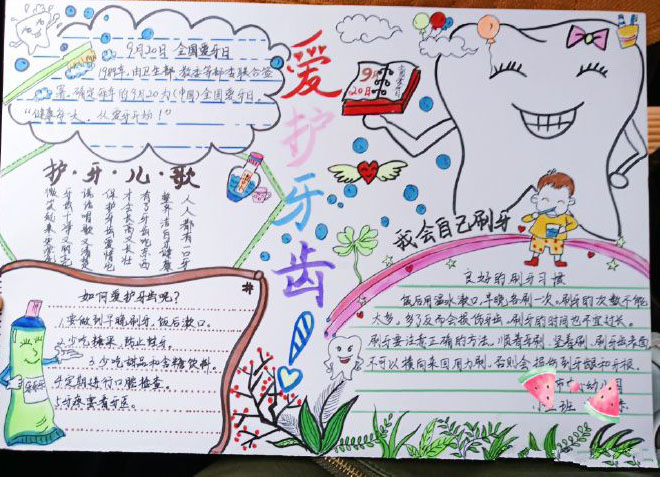 9月20日 全国爱牙日
1989年,由卫生部、教委等部委联合签
署,确定每年的9月20为(中国)全国爱牙日。
“健康每一天,从爱牙开始!”
爱护牙齿
9月
20日
护·牙·儿·歌
人人都有一口牙
整齐洁白
有了牙齿吃东西
才会长高又长壮
保护牙齿
牙齿干净
如何爱护牙齿呢?
1.要做到早晚刷牙,饭后漱口。
2.少吃糖果,防止蛀牙。
3.少吃甜品和含糖饮料。
4.定期进行口腔检查。
5.牙疼要看牙医。
我会自己刷牙
良好的刷牙习惯
饭后用温水漱口,早晚各刷一次,刷牙的次数不能
太多,多了反而会损伤牙齿,刷牙的时间也不宜过长。
刷牙要注意正确的方法,顺着牙刷,竖着刷,刷牙齿表面
不可以横向来回用力刷,否则会损伤牙龈和牙根。
幼儿园
小二班